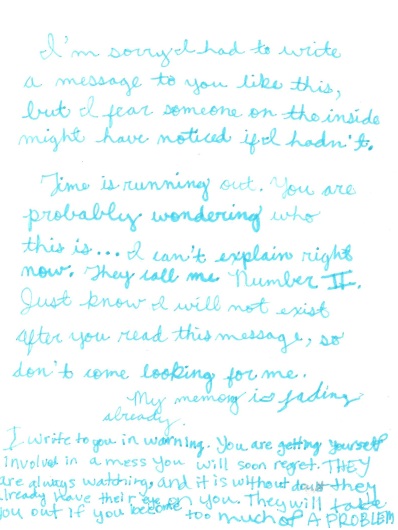 I'm sorry I had to write
a message to you like this,
but I fear someone on the inside
might have noticed if I hadn't.
Time is running out. You are
probably wondering who
this is... I can't explain right
now. They call me Number II.
Just know I will not exist
after you read this message, so
don't come looking for me.
My memory is fading
already.
I write to you in warning. You are getting yourself
involved in a mess you will soon regret. THEY
are always watching, and it is without doubt they
already have their eye on you. They will take
you out if you become too much of A PROBLEM